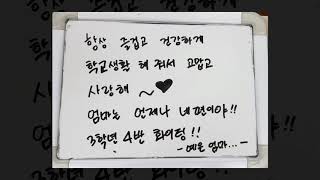 항상 즐겁고 건강하게
학교생활 해 줘서 고맙고
사랑해 ~♥
엄마는 언제나 네편이야!!
3학년 4반 화이팅!!
- 예은 엄마... -